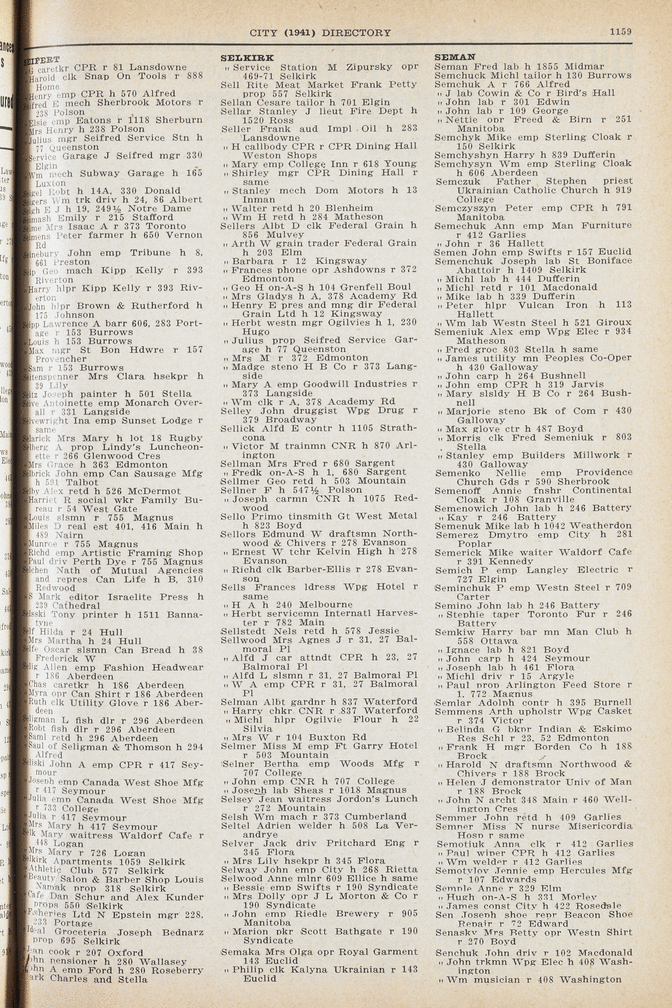 CITY (1941) DIRECTORY 1159
SEIFERT
G caretkr CPR r 81 Lansdowne
Harold clk Snap On Tools r 888
Home
Henry emp CPR h 570 Alfred
E mech Sherbrook Motors r
238 Polson
Elsie emp Eatons r 1118 Sherburn
Mrs Henry h 238 Polson
Julius mgr Seifred Service Stn h
77 Queenston
Service Garage J Seifred mgr 330
Elgin
Wm mech Subway Garage h 165
Luxton
Robt h 14A, 330 Donald
Wm trk driv h 24, 86 Albert
E J h 19, 249½ Notre Dame
Emily r 215 Stafford
Mrs Isaac A r 373 Toronto
Peter farmer h 650 Vernon
Rd
John emp Tribune h 8,
661 Preston
Geo mach Kipp Kelly r 393
Riverton
Harry hlpr Kipp Kelly r 393 Riv-
erton
John hlpr Brown & Rutherford h
175 Johnson
Lawrence A barr 606, 283 Port-
age r 153 Burrows
Louis h 153 Burrows
Max mgr St Bon Hdwre r 157
Provencher
Sam r 153 Burrows
Mrs Clara hsekpr h
39 Lily
Joseph painter h 501 Stella
Antoinette emp Monarch Over-
all r 331 Langside
Ina emp Sunset Lodge r
same
Mrs Mary h lot 18 Rugby
A prop Lindy's Luncheon-
ette r 266 Glenwood Cres
Mrs Grace h 363 Edmonton
John emp Can Sausage Mfg
h 591 Talbot
Alex retd h 526 McDermot
Harriet R social wkr Family Bu-
reau r 54 West Gate
Louis slsmn r 755 Magnus
Miles D real est 401, 416 Main h
489 Nairn
Munroe r 755 Magnus
Richd emp Artistic Framing Shop
Paul driv Perth Dye r 755 Magnus
Nath of Mutual Agencies
and repres Can Life h B, 310
Redwood
S Mark editor Israelite Press h
239 Cathedral
Tony printer h 1511 Banna-
tyne
Hilda r 24 Hull
Mrs Martha h 24 Hull
Oscar slsmn Can Bread h 38
Frederick W
Allen emp Fashion Headwear
r 186 Aberdeen
Chas caretkr h 186 Aberdeen
Myra opr Can Shirt r 186 Aberdeen
Ruth clk Utility Glove r 186 Aber-
deen
L fish dlr r 296 Aberdeen
Robt fish dlr r 296 Aberdeen
Saml retd h 296 Aberdeen
Saul of Seligman & Thomson h 294
Alfred
John A emp CPR r 417 Sey-
mour
Joseph emp Canada West Shoe Mfg
r 417 Seymour
Julia emp Canada West Shoe Mfg
r 733 College
Julia r 417 Seymour
Mrs Mary h 417 Seymour
Mary waitress Waldorf Cafe r
448 Logan
Mrs Mary r 726 Logan
Selkirk Apartments 1059 Selkirk
Athletic Club 577 Selkirk
Beauty Salon & Barber Shop Louis
Namak prop 318 Selkirk
Cafe Dan Schur and Alex Kunder
props 550 Selkirk
Fisheries Ltd N Epstein mgr 228,
Portage
Ideal Groceteria Joseph Bednarz
prop 695 Selkirk
cook r 207 Oxford
John pensioner h 280 Wallasey
John A emp Ford h 280 Roseberry
Charles and Stella
SELKIRK
" Service Station M Zipursky opr
469-71 Selkirk
Sell Rite Meat Market Frank Petty
prop 557 Selkirk
Sellan Cesare tailor h 701 Elgin
Sellar Stanley J lieut Fire Dept h
1520 Ross
Seller Frank aud Impl Oil h 283
Lansdowne
" H callboy CPR r CPR Dining Hall
Weston Shops
" Mary emp College Inn r 618 Young
" Shirley mgr CPR Dining Hall r
same
" Stanley mech Dom Motors h 13
Inman
" Walter retd h 20 Blenheim
" Wm H retd h 284 Matheson
Sellers Albt D clk Federal Grain h
856 Mulvey
" Arth W grain trader Federal Grain
h 203 Elm
" Barbara r 12 Kingsway
" Frances phone opr Ashdowns r 372
Edmonton
" Geo H on-A-S h 104 Grenfell Boul
" Mrs Gladys h A, 378 Academy Rd
" Henry E pres and mng dir Federal
Grain Ltd h 12 Kingsway
" Herbt westn mgr Ogilvies h 1, 230
Hugo
" Julius prop Seifred Service Gar-
age h 77 Queenston
" Mrs M r 372 Edmonton
" Madge steno H B Co r 373 Lang-
side
" Mary A emp Goodwill Industries r
373 Langside
" Wm clk r A, 378 Academy Rd
Selley John druggist Wpg Drug r
379 Broadway
Sellick Alfd E contr h 1105 Strath-
cona
" Victor M trainmn CNR h 870 Arl-
ington
Sellman Mrs Fred r 680 Sargent
" Fredk on-A-S h 1, 680 Sargent
Sellmer Geo retd h 503 Mountain
Sellner F h 547½ Polson
" Joseph carmn CNR h 1075 Red-
wood
Sello Primo tinsmith Gt West Metal
h 823 Boyd
Sellors Edmund W draftsmn North-
wood & Chivers r 278 Evanson
" Ernest W tchr Kelvin High h 278
Evanson
" Richd clk Barber-Ellis r 278 Evan-
son
Sells Frances ldress Wpg Hotel r
same
" H A h 240 Melbourne
" Herbt servicemn Internatl Harves-
ter r 782 Main
Sellstedt Nels retd h 578 Jessie
Sellwood Mrs Agnes J r 31, 27 Bal-
moral Pl
" Alfd J car attndt CPR h 23, 27
Balmoral Pl
" Alfd L slsmn r 31, 27 Balmoral Pl
" W A emp CPR r 31, 27 Balmoral
Pl
Selman Albt gardnr h 837 Waterford
" Harry chkr CNR r 837 Waterford
" Michl hlpr Ogilvie Flour h 22
Silvia
" Mrs W r 104 Buxton Rd
Selmer Miss M emp Ft Garry Hotel
r 503 Mountain
Selner Bertha emp Woods Mfg r
707 College
" John emp CNR h 707 College
" Joseph lab Sheas r 1018 Magnus
Selsey Jean waitress Jordon's Lunch
r 272 Mountain
Selsh Wm mach r 373 Cumberland
Seltel Adrien welder h 508 La Ver-
andrye
Selver Jack driv Pritchard Eng r
345 Flora
" Mrs Lily hsekpr h 345 Flora
Selway John emp City h 268 Rietta
Selwood Anne mlnr 609 Ellice h same
" Bessie emp Swifts r 190 Syndicate
" Mrs Dolly opr J L Morton & Co r
190 Syndicate
" John emp Riedle Brewery r 905
Manitoba
" Marion pkr Scott Bathgate r 190
Syndicate
Semaka Mrs Olga opr Royal Garment
143 Euclid
" Philip clk Kalyna Ukrainian r 143
Euclid
SEMAN
Seman Fred lab h 1855 Midmar
Semchuck Michl tailor h 130 Burrows
Semchuk A r 766 Alfred
" J lab Cowin & Co r Bird's Hill
" John lab r 301 Edwin
" John lab r 109 George
" Nettie opr Freed & Birn r 251
Manitoba
Semchyk Mike emp Sterling Cloak r
150 Selkirk
Semchyshyn Harry h 839 Dufferin
Semchysyn Wm emp Sterling Cloak
h 606 Aberdeen
Semczuk Father Stephen priest
Ukrainian Catholic Church h 919
College
Semczyszyn Peter emp CPR h 791
Manitoba
Semechuk Ann emp Man Furniture
r 412 Garlies
" John r 36 Hallett
Semen John emp Swifts r 157 Euclid
Semenchuk Joseph lab St Boniface
Abattoir h 1409 Selkirk
" Michl lab h 444 Dufferin
" Michl retd r 101 Macdonald
" Mike lab h 339 Dufferin
" Peter hlpr Vulcan Iron h 113
Hallett
" Wm lab Westn Steel h 521 Giroux
Semeniuk Alex emp Wpg Elec r 934
Matheson
" Fred groc 803 Stella h same
" James utility mn Peoples Co-Oper
h 430 Galloway
" John carp h 264 Bushnell
" John emp CPR h 319 Jarvis
" Mary slsldy H B Co r 264 Bush-
nell
" Marjorie steno Bk of Com r 430
Galloway
" Max glove ctr h 487 Boyd
" Morris clk Fred Semeniuk r 803
Stella
" Stanley emp Builders Millwork r
430 Galloway
Semenko Nellie emp Providence
Church Gds r 590 Sherbrook
Semenoff Annie fnshr Continental
Cloak r 108 Granville
Semenowich John lab h 246 Battery
" Kay r 246 Battery
Semenuk Mike lab h 1042 Weatherdon
Semerez Dmytro emp City h 281
Poplar
Semerick Mike waiter Waldorf Cafe
r 391 Kennedy
Semich P emp Langley Electric r
727 Elgin
Seminchuk P emp Westn Steel r 709
Carter
Semino John lab h 246 Battery
" Stephie taper Toronto Fur r 246
Battery
Semkiw Harry bar mn Man Club h
558 Ottawa
" Ignace lab h 821 Boyd
" John carp h 424 Seymour
" Joseph lab h 461 Flora
" Michl driv r 15 Argyle
" Paul prop Arlington Feed Store r
1, 772 Magnus
Semlar Adolph contr h 395 Burnell
Semmens Arth upholstr Wpg Casket
r 374 Victor
" Belinda G bkpr Indian & Eskimo
Res Schl r 23, 52 Edmonton
" Frank H mgr Borden Co h 188
Brock
" Harold N draftsmn Northwood &
Chivers r 188 Brock
" Helen J demonstrator Univ of Man
r 188 Brock
" John N archt 348 Main r 460 Well-
ington Cres
Semmer John retd h 409 Garlies
Semner Miss N nurse Misericordia
Hosp r same
Semotiuk Anne clk r 412 Garlies
" Paul winer CPR h 412 Garlies
" Wm welder r 412 Garlies
Semotylov Jennie emp Hercules Mfg
r 107 Edwards
Semple Anne r 329 Elm
" Hugh on-A-S h 331 Morley
" James const City h 422 Rosedale
Sen Joseph shoe repr Beacon Shoe
Repair r 72 Edward
Senasky Mrs Betty opr Westn Shirt
r 270 Boyd
Senchuk John driv r 102 Macdonald
" John trkmn Wpg Elec h 408 Wash-
ington
" Wm musician r 408 Washington